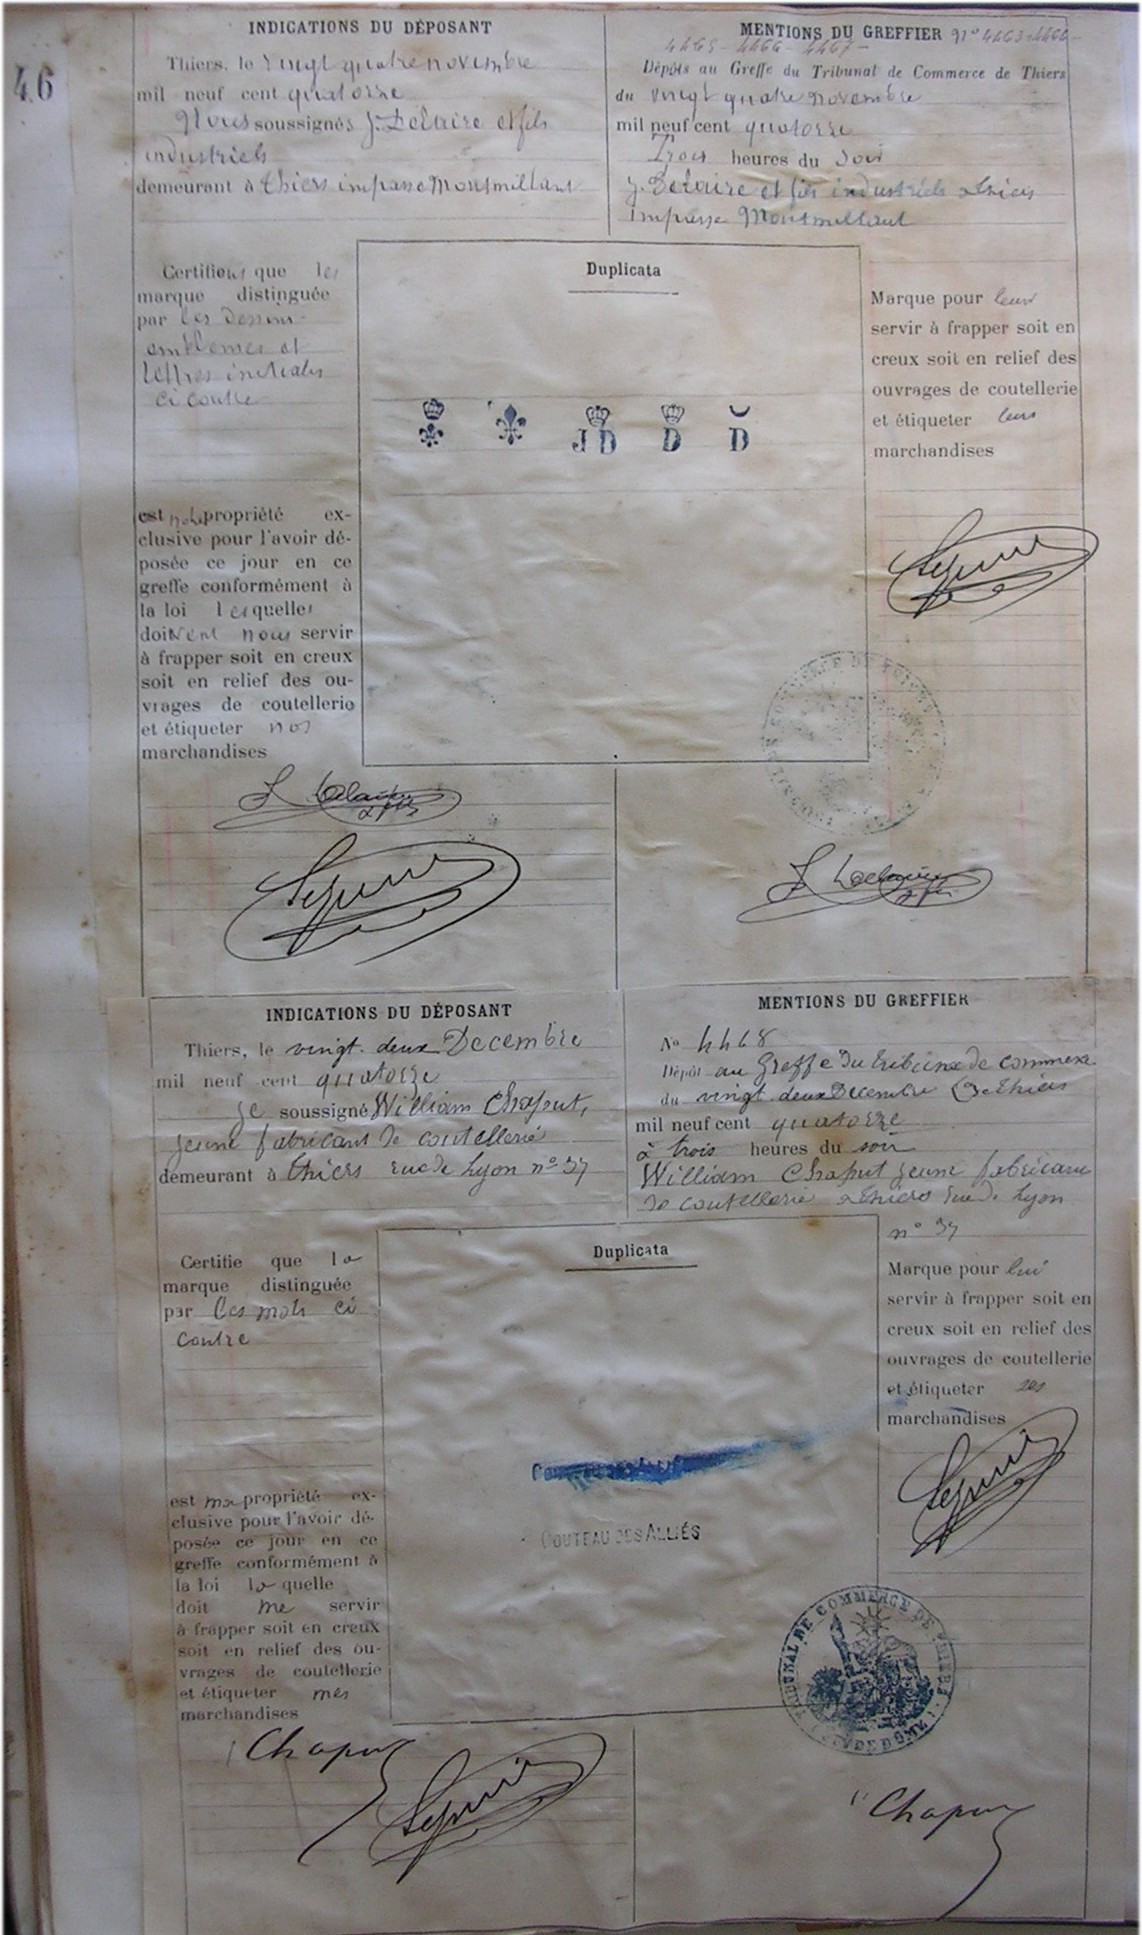 46
INDICATIONS DU DÉPOSANT
Thiers, le Vingt quatre novembre
mil neuf cent quatorze
Nous soussignés J. Delaire et fils
industriels
demeurant à Thiers impasse Montmillant
MENTIONS DU GREFFIER No 4463-4464-
4465-4466-4467-
Dépôts au Greffe du Tribunal de Commerce de Thiers
du vingt quatre novembre
mil neuf cent quatorze
Trois heures du Soir
J. Delaire et fils industriels à Thiers
impasse Montmillant
Certifions que les
marque distinguée
par les dessins
emblemes et
lettres initiales
ci contre
est notre propriété ex-
clusive pour l'avoir dé-
posée ce jour en ce
greffe conformément à
la loi lesquelles
doivent nous servir
à frapper soit en creux
soit en relief des ou-
vrages de coutellerie
et étiqueter nos
marchandises
Duplicata
J D D D
Marque pour leur
servir à frapper soit en
creux soit en relief des
ouvrages de coutellerie
et étiqueter leurs
marchandises
J Delaire
& fils
J Delaire
& fils
INDICATIONS DU DÉPOSANT
Thiers, le vingt deux Decembre
mil neuf cent quatorze
je soussigné William Chaput,
jeune fabricant de coutellerie
demeurant à Thiers rue de Lyon no 37
MENTIONS DU GREFFIER
No 4468
Dépôt au Greffe du tribunal de commerce
du vingt deux Decembre de Thiers
mil neuf cent quatorze
à trois heures du soir
William Chaput jeune fabricant
de coutellerie à Thiers rue de Lyon
no 37
Certifie que la
marque distinguée
par les mots ci
contre
est ma propriété ex-
clusive pour l'avoir dé-
posée ce jour en ce
greffe conformément à
la loi la quelle
doit me servir
à frapper soit en creux
soit en relief des ou-
vrages de coutellerie
et étiqueter mes
marchandises
Duplicata
COUTEAU DES ALLIÉS
Marque pour lui
servir à frapper soit en
creux soit en relief des
ouvrages de coutellerie
et étiqueter ses
marchandises
TRIBUNAL DE COMMERCE DE THIERS
PUY DE DOME
Chaput
Chaput